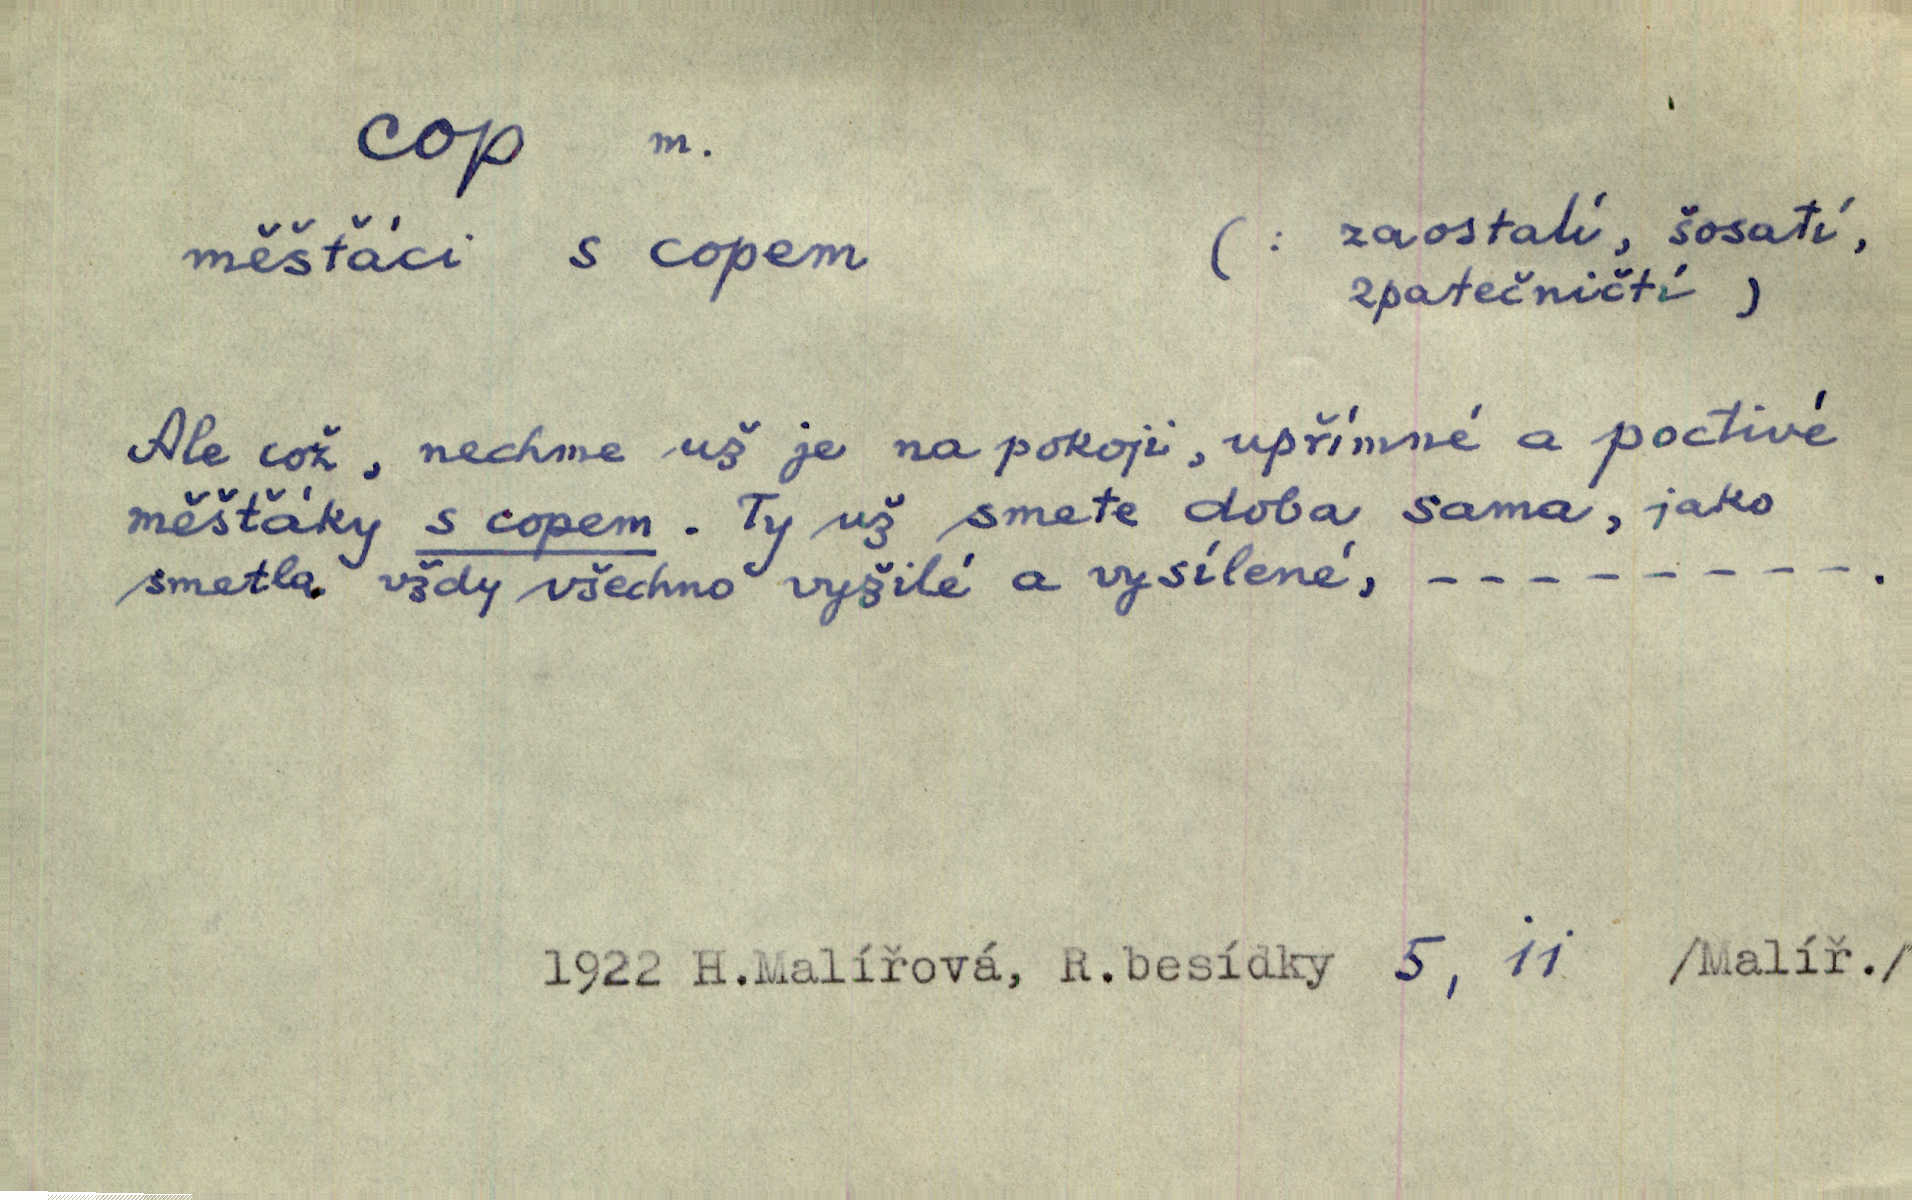 cop m.
měšťáci s copem (: zaostalí, šosatí,
zpatečničtí )
Ale což, nechme už je na pokoji, upřímné a poctivé
měšťáky s copem. Ty už smete doba sama, jako
smetla vždy všechno vyžilé a vysílené, - - - - - - - - -.
1922 H.Malířová, R.besídky 5, ii /Malíř./